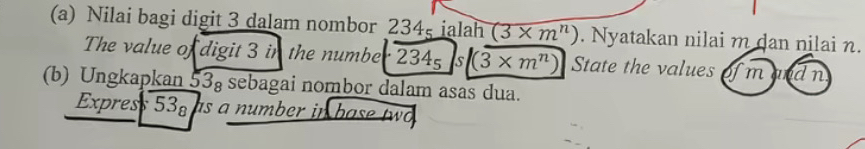 (a) Nilai bagi digit 3 dalam nombor 234₅ ialah (3 × mⁿ). Nyatakan nilai m dan nilai n.
The value of digit 3 in the number 234₅ is (3 × mⁿ). State the values of m and n.
(b) Ungkapkan 53₈ sebagai nombor dalam asas dua.
Express 53₈ as a number in base two.